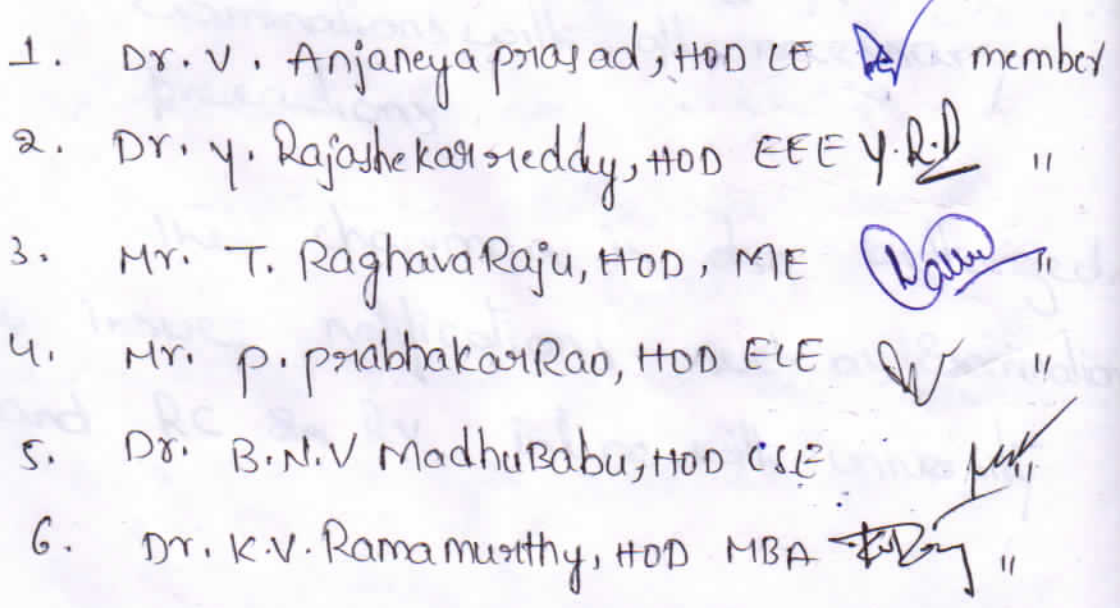 1. Dr. V. Anjaneya prasad, HOD CE member
2. Dr. y. Rajashekar reddy, HOD EEE Y.R.D "
3. Mr. T. Raghava Raju, HOD, ME "
4. Mr. p. prabhakar Rao, HOD ECE "
5. Dr. B.N.V MadhuBabu, HOD CSE "
6. Dr. K.V. Ramamurthy, HOD MBA "